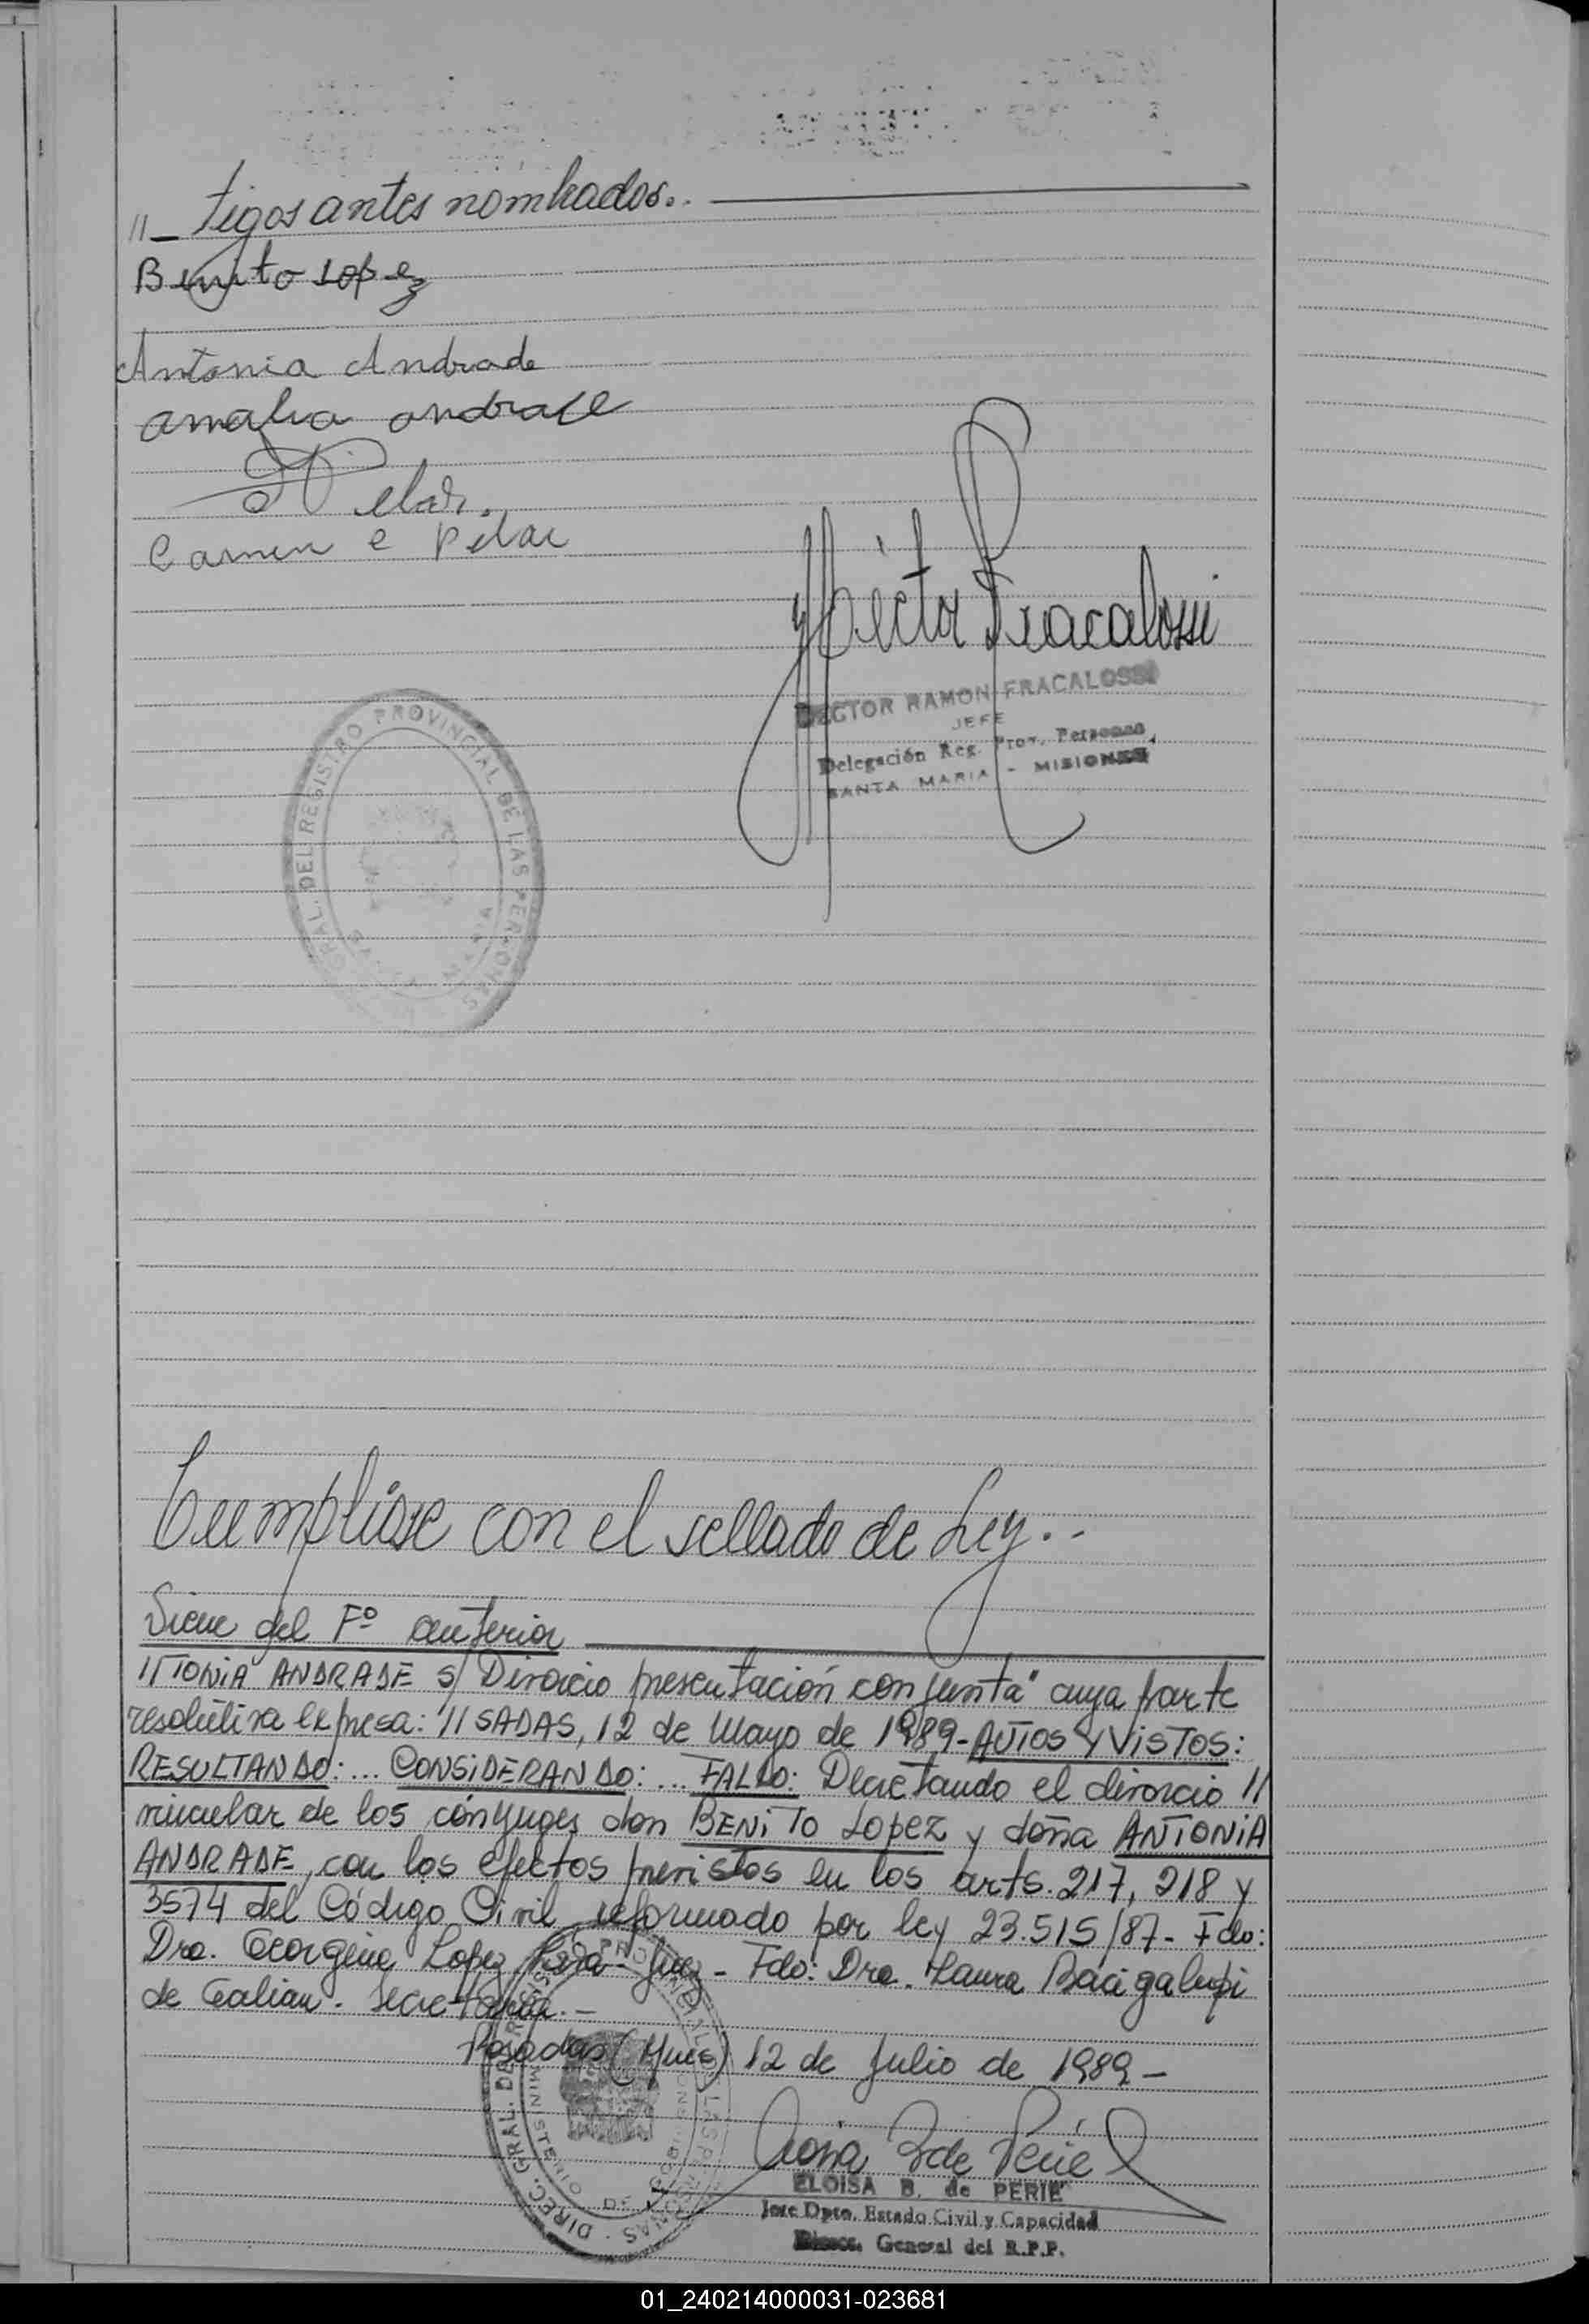 "_ tigos antes nombrados..
Benito Lopez
Antonia Andrade
amalia andrade
Pelar.
Carmen e Pelar
Héctor Fracalossi
HECTOR RAMON FRACALOSSI
JEFE
Delegación Reg. Prov. Personas
SANTA MARIA - MISIONES
GRAL. DEL REGISTRO PROVINCIAL DE LAS PERSONAS
SANTA MARIA
Cumpliose con el sellado de Ley..
Viene del Fº anterior
//TONIA ANDRADE s/ Divorcio presentación conjunta" cuya parte
resolutiva expresa: "//SADAS, 12 de Mayo de 1989-AUTOS Y VISTOS:
RESULTANDO:... CONSIDERANDO:... FALLO: Decretando el divorcio //
vincular de los cónyuges don BENITO Lopez y doña ANTONIA
ANDRADE, con los efectos previstos en los arts. 217, 218 y
3574 del Código Civil reformado por ley 23.515/87- Fdo:
Dra. Georgina Lopez - Juez - Fdo: Dra. Laura Bacigalupi
de Galian. Secretaria.-
Posadas (Mnes) 12 de Julio de 1989-
DIREC. GRAL. DEL REGISTRO PROVINCIAL DE LAS PERSONAS
MINISTERIO DE GOBIERNO
B de Perié
ELOISA B. de PERIE
Jefe Dpto. Estado Civil y Capacidad
Direcc. General del R.P.P.
01_240214000031-023681